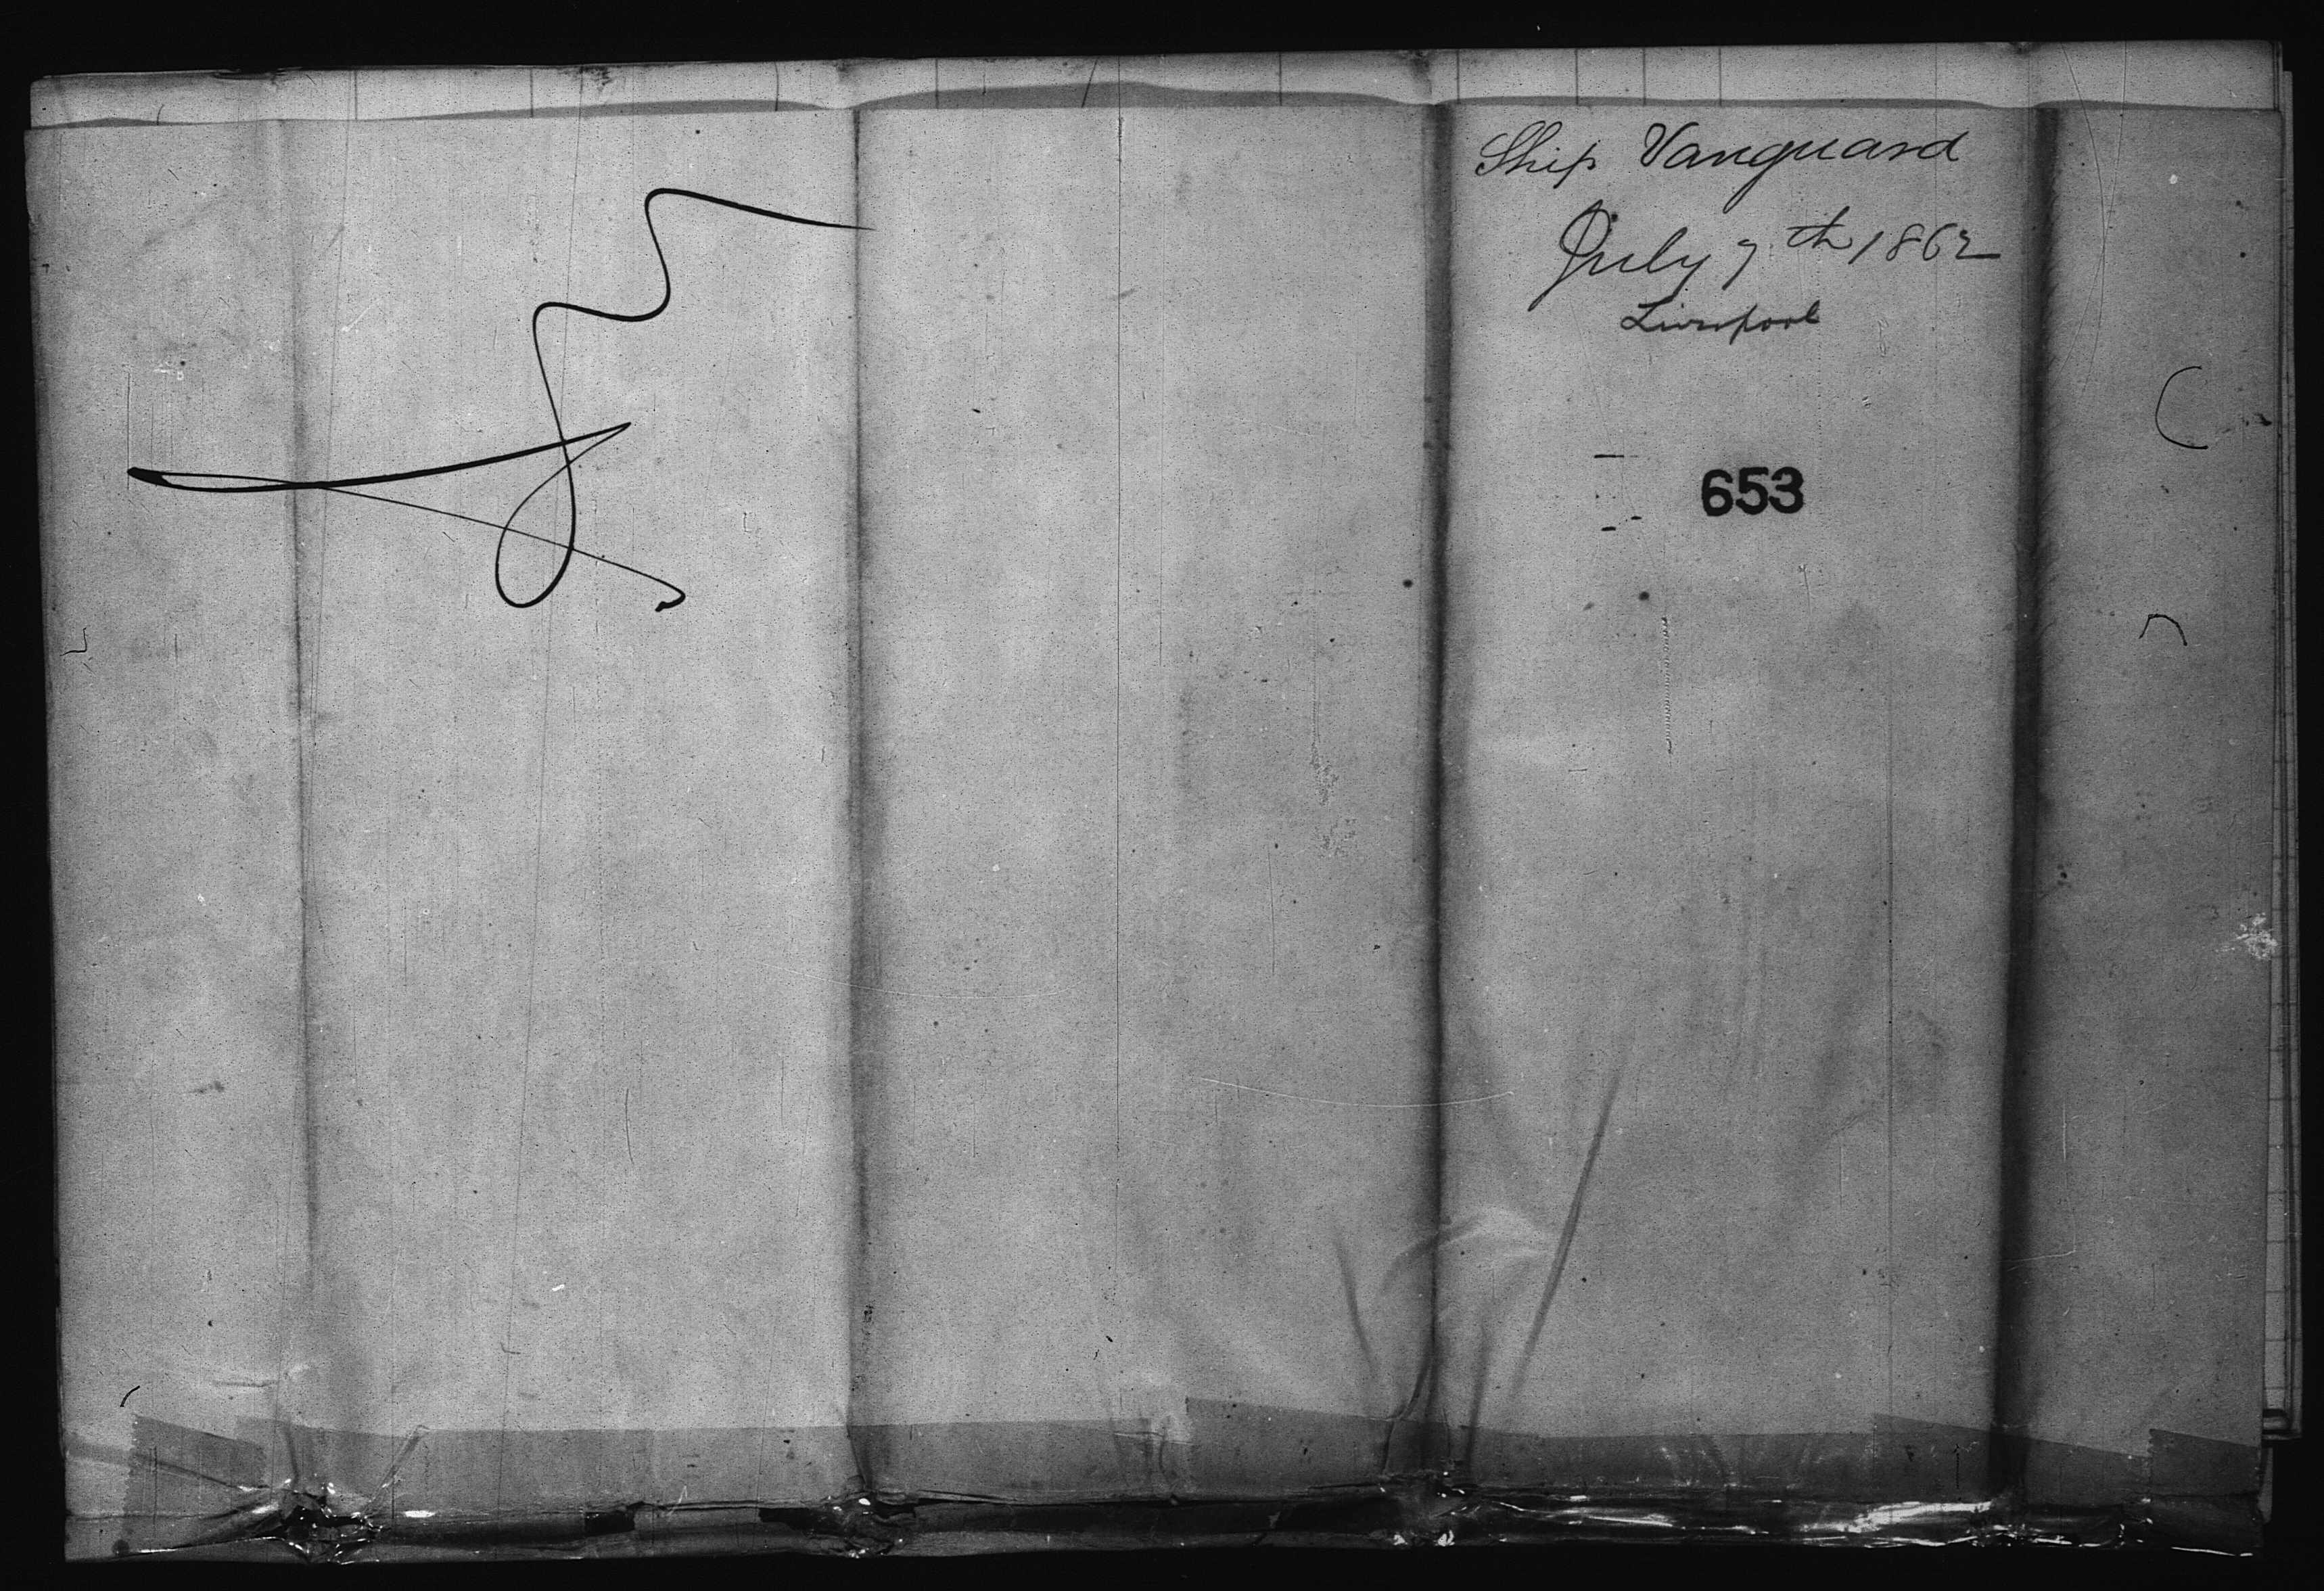 Ship Vanguard
July 7th 1862
Liverpool
653